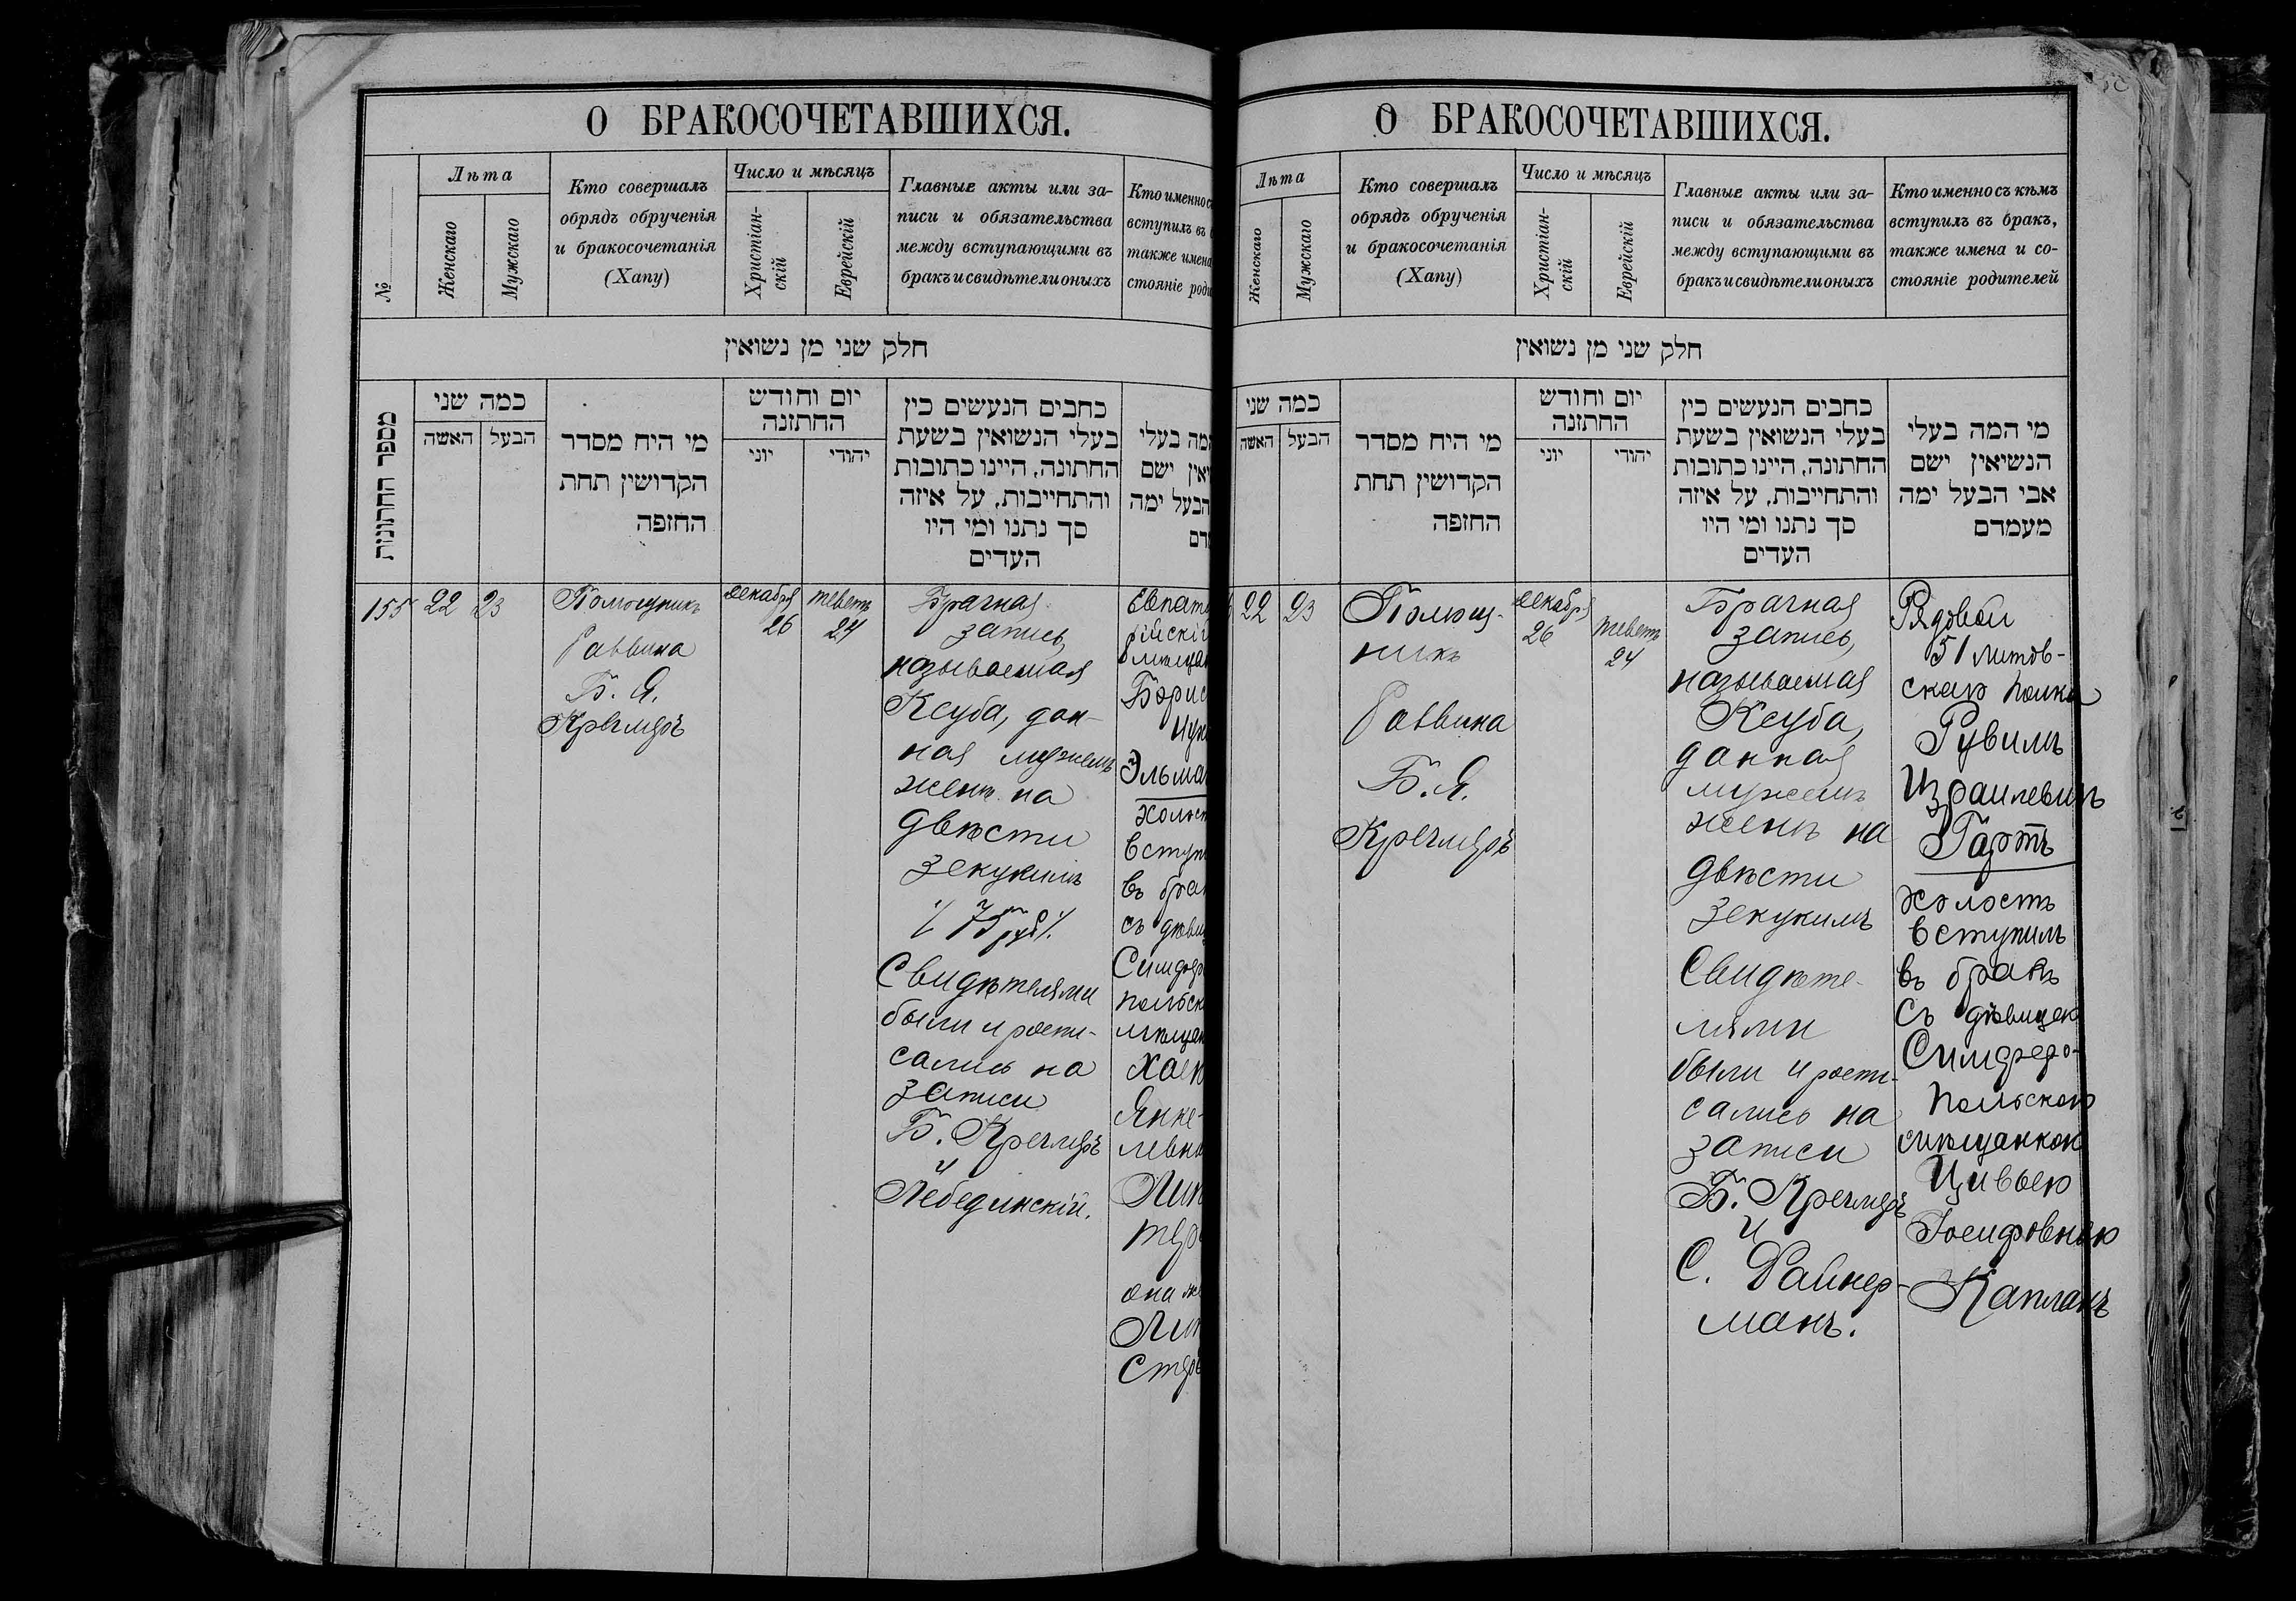 О БРАКОСОЧЕТАВШИХСЯ.
№
Лѣта
Женскаго
Мужскаго
Кто совершалъ
обрядъ обрученія
и бракосочетанія
(Хапу)
Число и мѣсяцъ
Христіан-
скій
Еврейскій
Главные акты или за-
писи и обязательства
между вступающими въ
бракъ и свидѣтели оныхъ
Кто именно с
вступилъ въ
также имена
стояніе роди
חלק שני מן נשואין
מספר החתונות
כמה שני
האשה
הבעל
מי היח מסדר
הקדושין תחת
החזפה
יום וחודש
החתזנה
יוני
יהודי
כחבים הנעשים כין
בעלי הנשואין בשעת
החתונה, היינו כתובות
והתחייבות, על איזה
סך נתנו ומי היו
העדים
המה בעלי
יאין ישם
הבעל ימה
155
22
23
Помощникъ
Раввина
Б. Я.
Кречмеръ
декабря
26
теветъ
24
Брачная
запись,
называемая
Ксуба, дан-
ная мужемъ
женѣ на
двѣсти
зекукимъ
75 руб
Свидѣтелями
были и роспи-
сались на
записи
Б. Кречмеръ
и
Лебединскій.
Евпато
рійскій
мѣщан
Борис
Цук
Эльма
холост
вступи
въ бра
съ дѣви
Симферо
польск
мѣщан
Хаею
Янке-
левно
Лип
тер
она ж
Лих
стер
О БРАКОСОЧЕТАВШИХСЯ.
Лѣта
Женскаго
Мужскаго
Кто совершалъ
обрядъ обрученія
и бракосочетанія
(Хапу)
Число и мѣсяцъ
Христіан-
скій
Еврейскій
Главные акты или за-
писи и обязательства
между вступающими въ
бракъ и свидѣтели оныхъ
Кто именно съ кѣмъ
вступилъ въ бракъ,
также имена и со-
стояніе родителей
חלק שני מן נשואין
כמה שני
האשה
הבעל
מי היח מסדר
הקדושין תחת
החזפה
יום וחודש
החתזנה
יוני
יהודי
כחבים הנעשים כין
בעלי הנשואין בשעת
החתונה, היינו כתובות
והתחייבות, על איזה
סך נתנו ומי היו
העדים
מי המה בעלי
הנשיאין ישם
אבי הבעל ימה
מעמדם
22
23
Помощ-
никъ
Раввина
Б. Я.
Кречмеръ
декабря
26
теветъ
24
Брачная
запись,
называемая
Ксуба,
данная
мужемъ
женѣ на
двѣсти
зекукимъ
Свидѣте-
лями
были и роспи-
сались на
записи
Б. Кречмеръ
и
С. Файнер-
манъ.
Рядовой
51 Литов-
скаго полка
Рувимъ
Израилевичъ
Гартъ
холостъ
вступилъ
въ бракъ
съ дѣвицею
Симферо-
польскою
мѣщанкою
Цивьею
Іосифовною
Капланъ